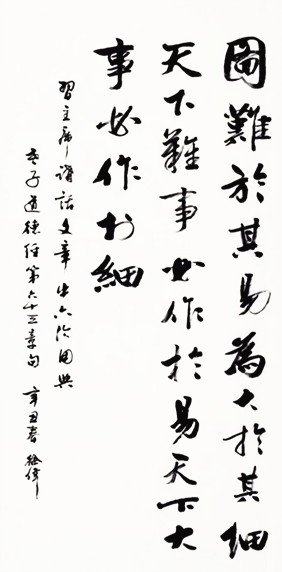 圖難於其易為大於其細
天下難事必作於易天下大
事必作於細
習主席講話文章中六次用典
老子道德經第六十三章句 辛丑春 徐偉